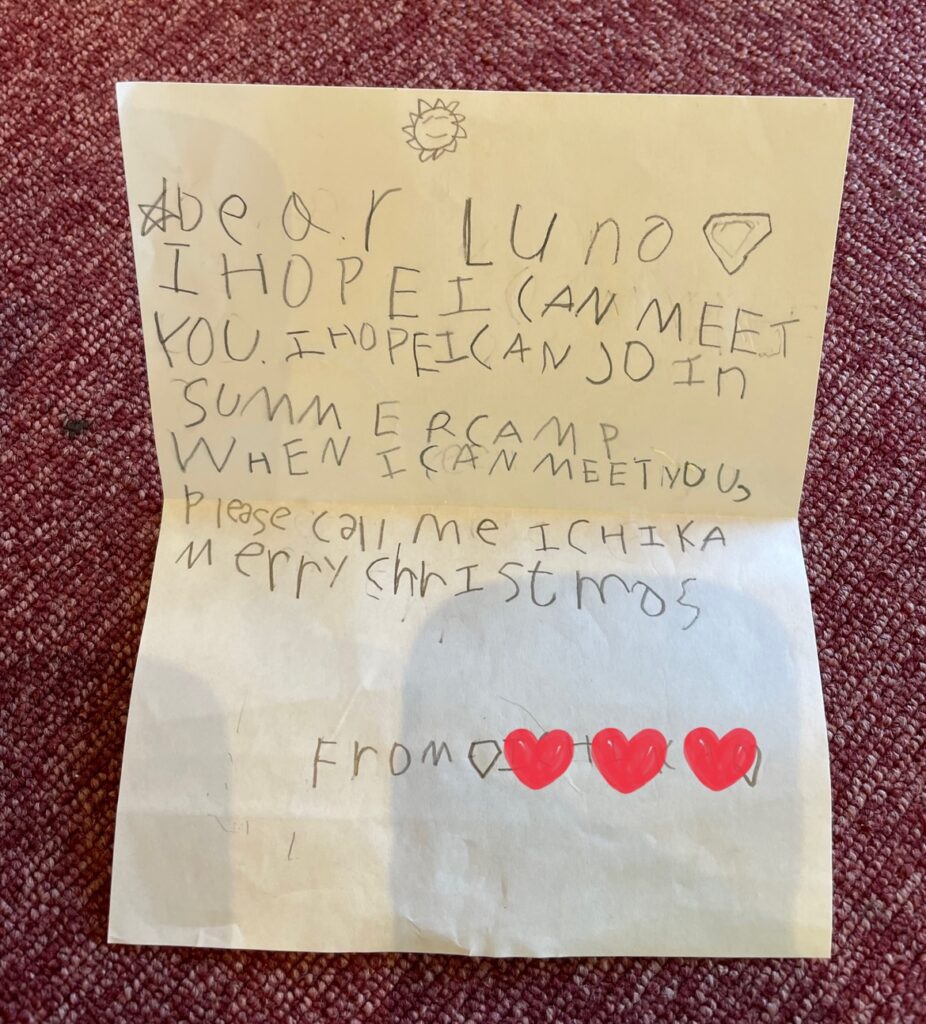 Dear Luna
I HOPE I CAN MEET
YOU. I HOPE I CAN JOIn
SUMMERCAMP
WHEN I CAN MEET YOU,
Please call me ICHIKA
Merry christmas
From